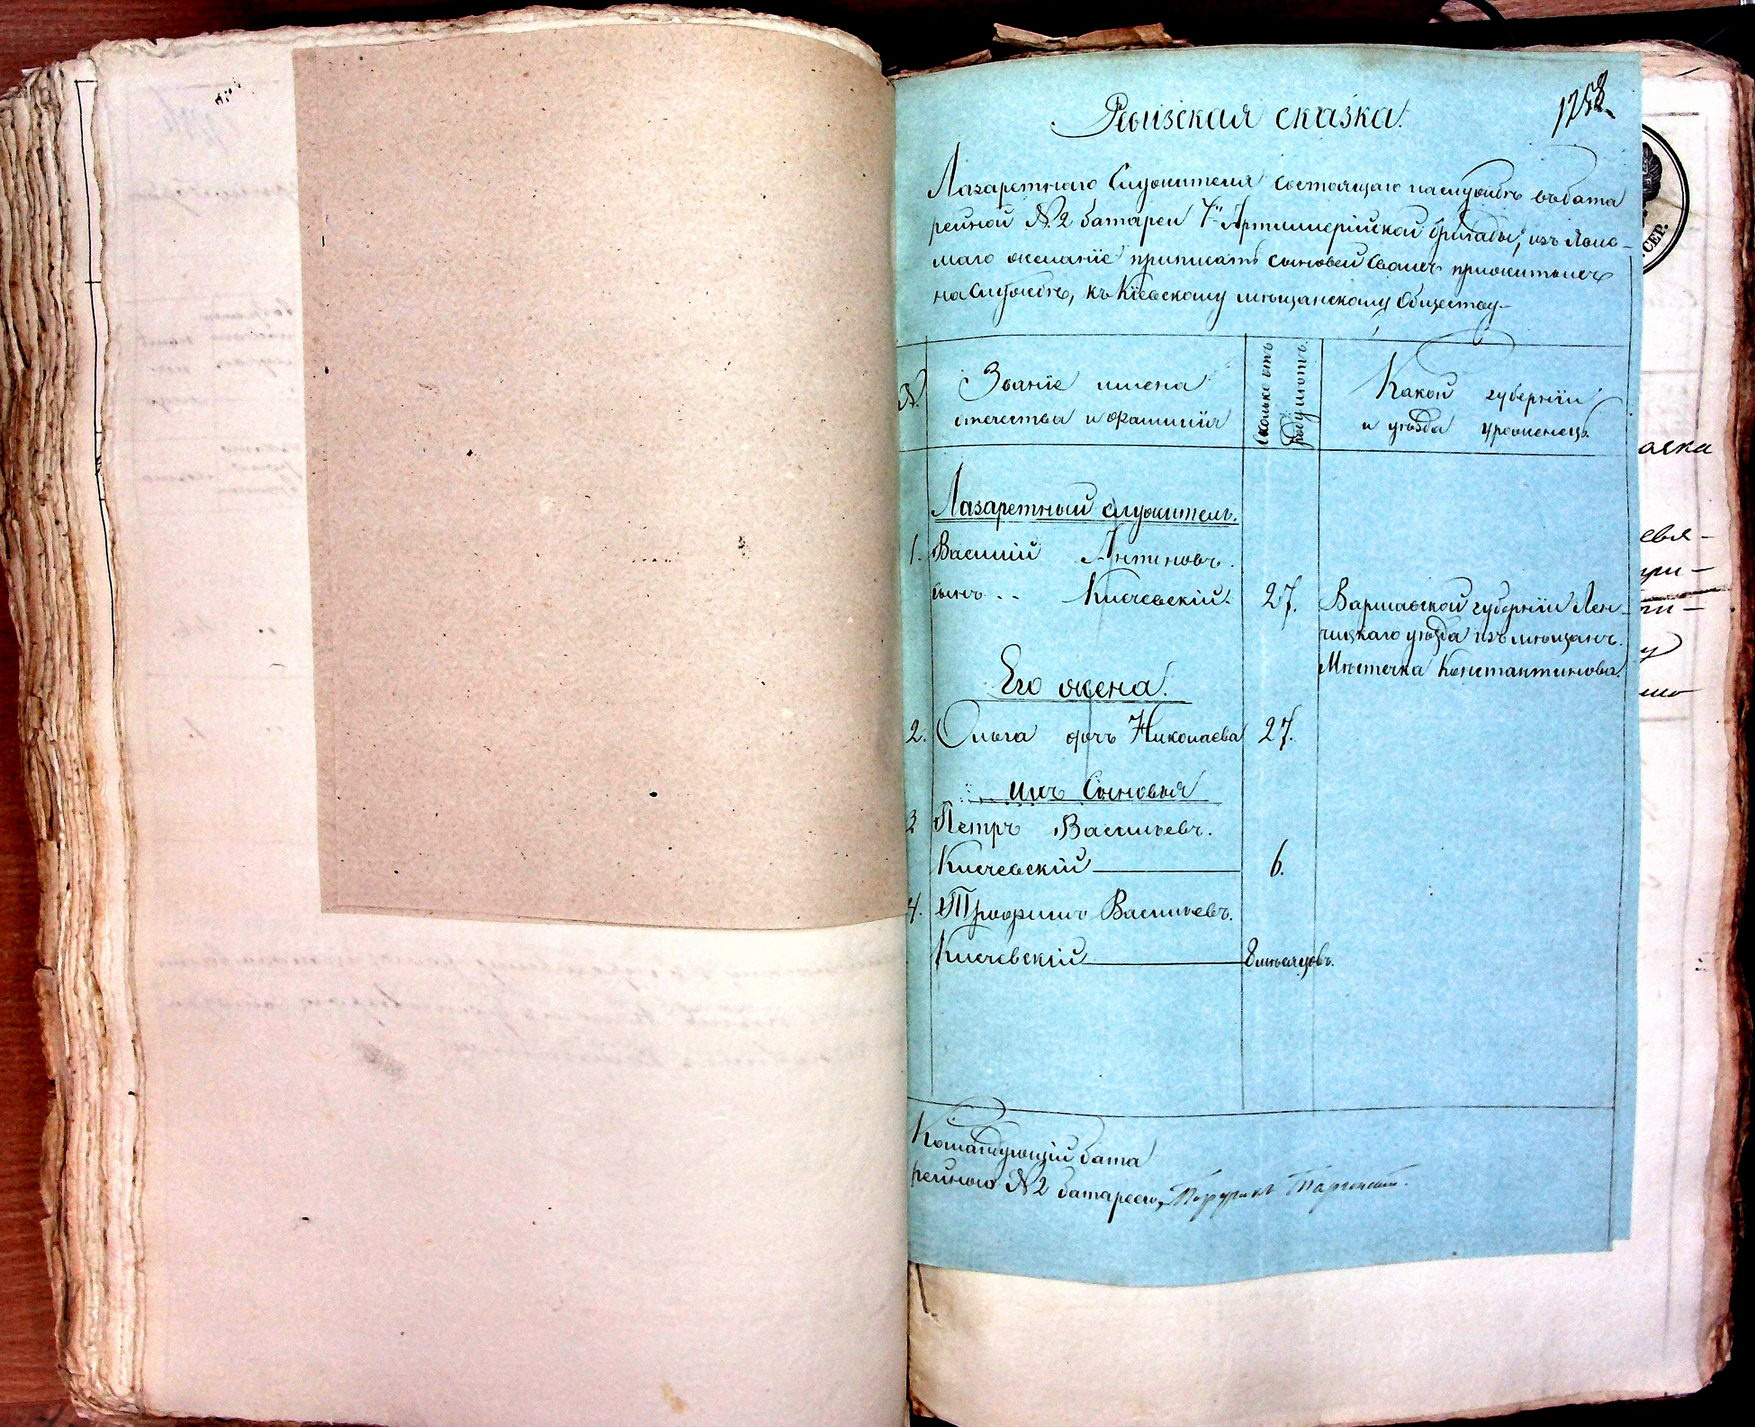 1258
Ревизская сказка.
Лазаретного Служителя состоящаго наслужбѣ въбата
рейной №2 батареи 7й Артиллерійской бригады, изъ
маго желаніе приписать сыновей своихъ прижитыхъ
наслужбѣ, къ Кіевскому мѣщанскому Обществу
№
Званіе имена
отечества и фаммиліи
Сколько отъ
роду лѣтъ.
Какой губерніи
и уѣзда уроженецъ.
Лазаретный служитель.
1. Василій Антоновъ.
сынъ .. Кисчевскій. 27. Варшавской губерніи Лен-
чицкаго уѣзда изъ мѣщанъ.
Мѣстечка Константинова.
Его жена.
2. Ольга дочь Николаева 27.
ихъ Сыновья
3 Петръ Васильевъ.
Кисчевскій 6.
4. Трофимъ Васильевъ.
Кисчевскій 8 мѣсяцовъ.
Командующій бата
рейною №2 батареею, Порутчикъ
СЕР.